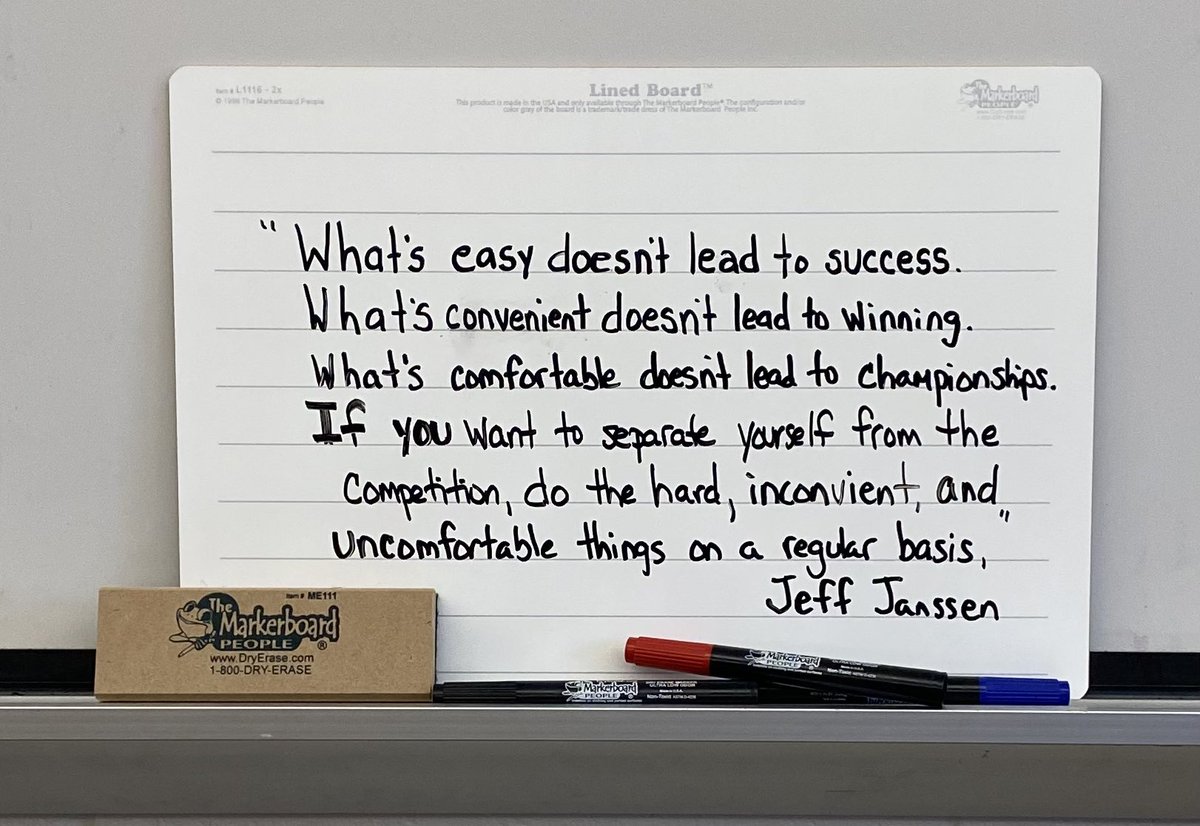 Item # L1116 - 2x
© 1998 The Markerboard People
Lined Board™
This product is made in the USA and only available through The Markerboard People® The configuration and/or
color grey of the board is a trademark/trade dress of The Markerboard People Inc.
The Markerboard
PEOPLE
1-800-DRY-ERASE
"What's easy doesn't lead to success.
What's convenient doesn't lead to winning.
What's comfortable doesn't lead to championships.
If you want to separate yourself from the
competition, do the hard, inconvient, and
uncomfortable things on a regular basis,"
Jeff Janssen
Item # ME111
The
Markerboard
PEOPLE®
www.DryErase.com
1-800-DRY-ERASE
The Markerboard
PEOPLE
Made in U.S.A.
Non-Toxic
The Markerboard
PEOPLE
ULTRA LOW ODOR
Made in U.S.A.
Non-Toxic